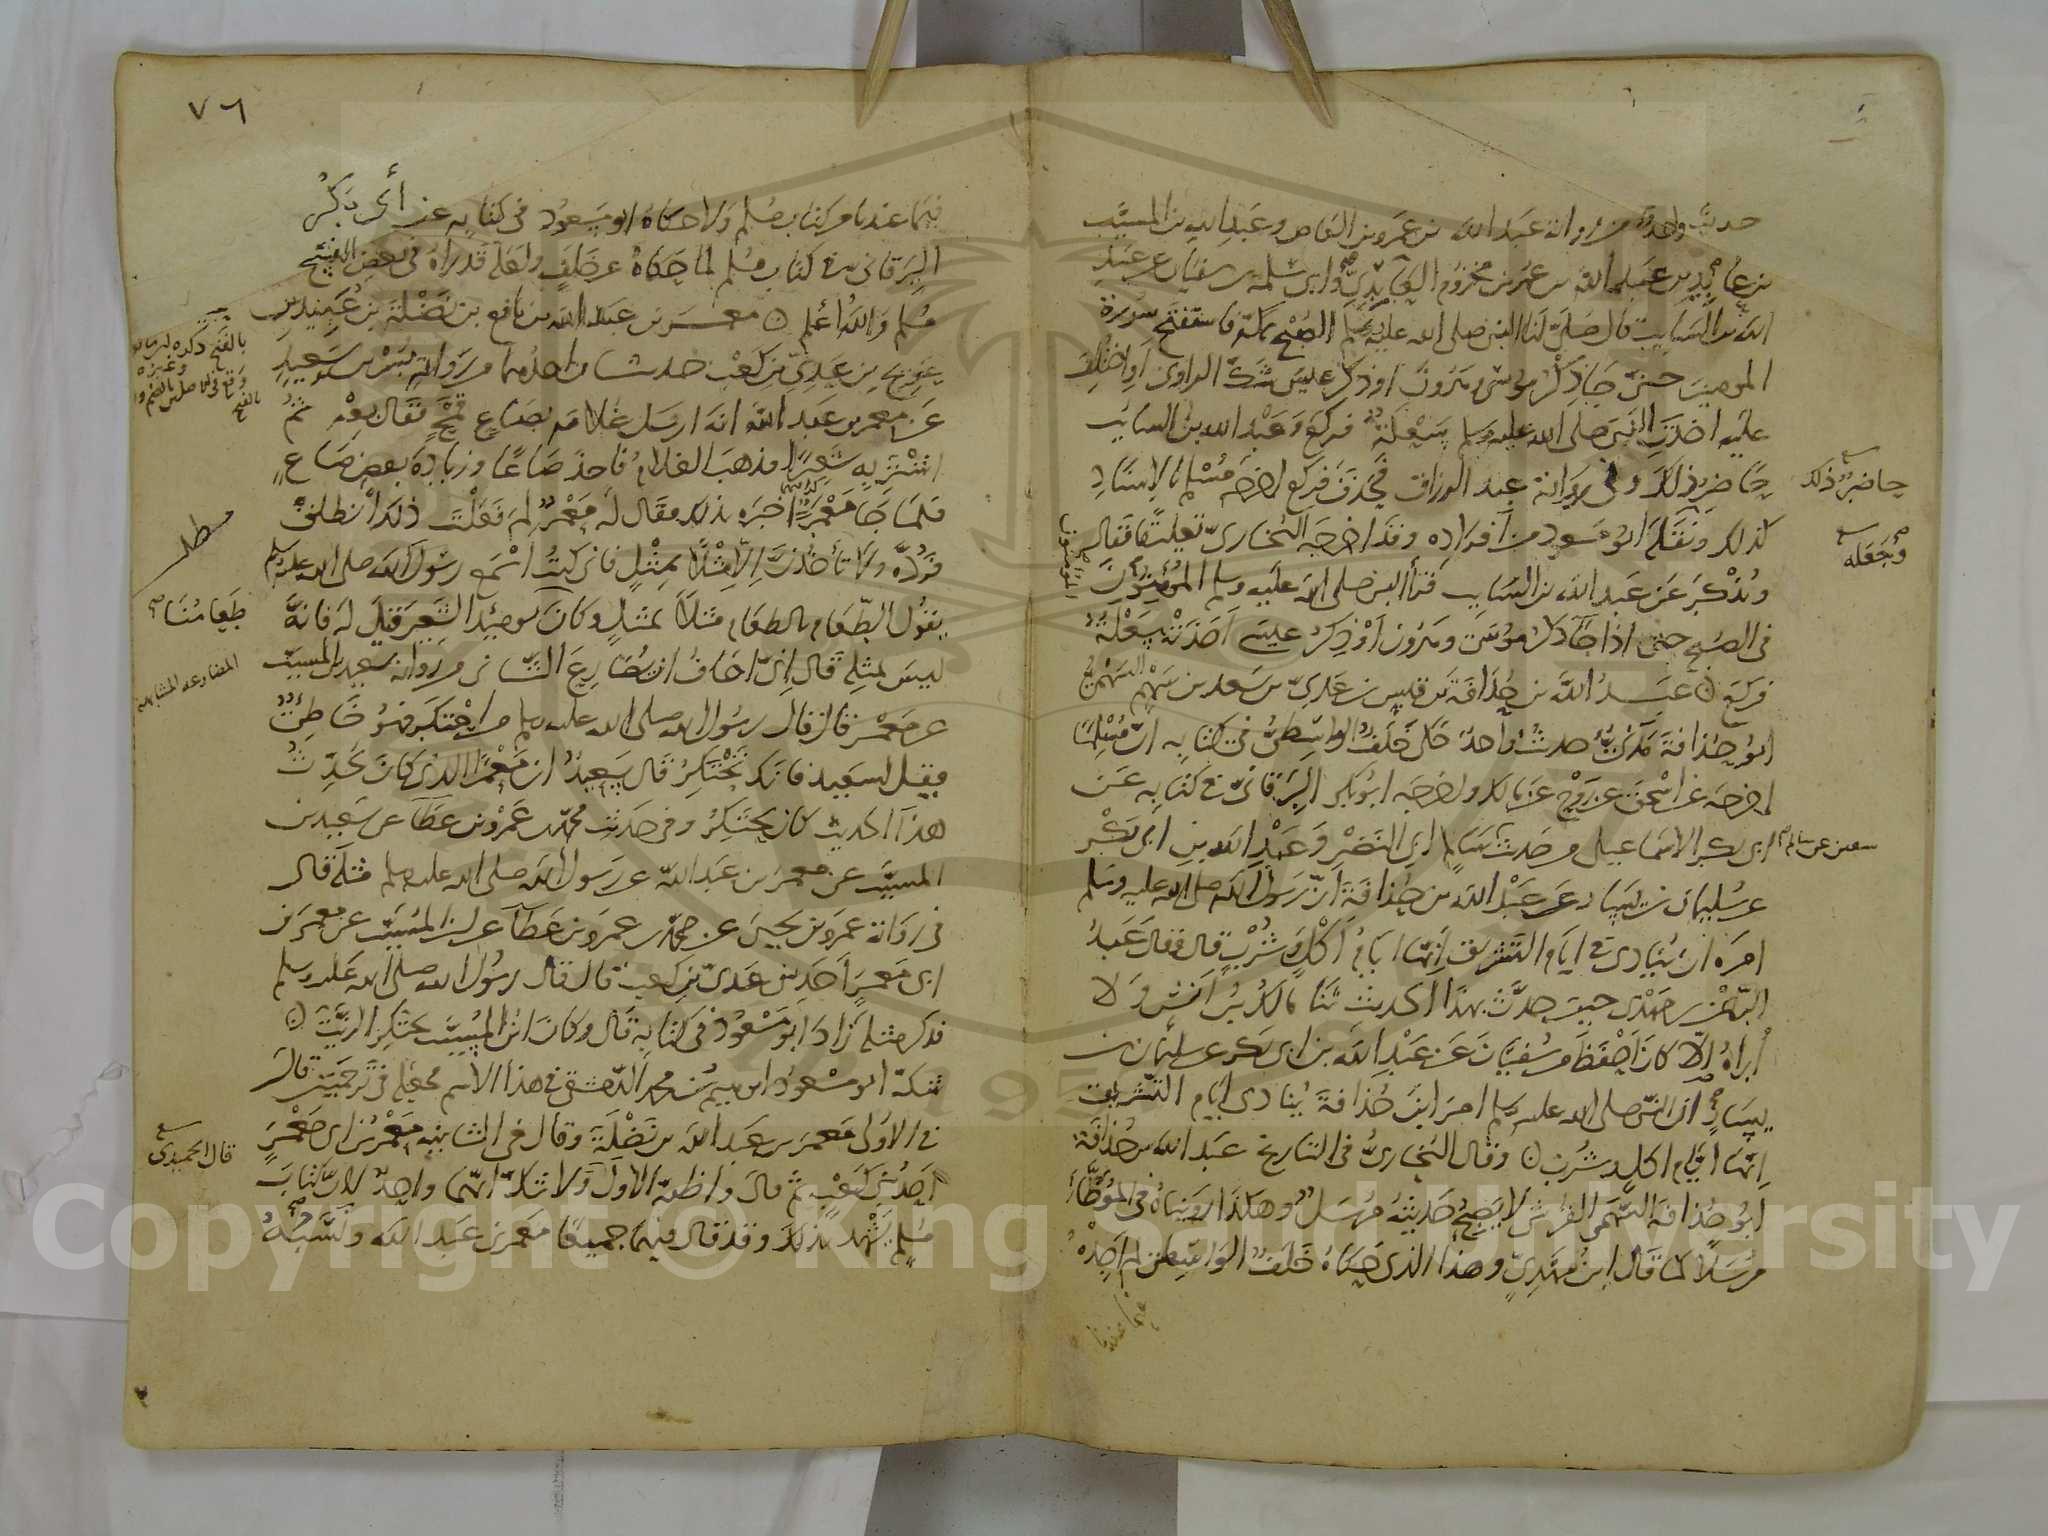 حديث واحد من رواية عبد الله بن عمرو بن العاص وعبد الله بن المسيب
بن عابد بن عبد الله بن عمر بن مخزوم العابدي وابي سلمة بن سفيان عن عبد
الله بن السايب قال صلى لنا النبي صلى الله عليه وسلم الصبح بمكة فاستفتح سورة
المومنين حتى جا ذكر موسى وهرون او ذكر عيسى شك الراوي او اختلف
عليه اخذت النبي صلى الله عليه وسلم سعلة فركع وعبد الله بن السايب
حاضر ذلك وفي رواية عبد الرزاق فحذف فركع اخرجه مسلم بالاسناد
حاضر ذلك
كذلك ونقله ابو مسعود من افراده وقد اخرجه البخاري تعليقا فقال
وجعله
ويذكر عن عبد الله بن السايب قرأ النبي صلى الله عليه وسلم المؤمنون
في الصبح حتى اذا جا ذكر موسى وهرون أو ذكر عيسى اخذته سعلة
فركع عبد الله بن حذافة بن قيس بن عدي بن سعد بن سهم السهمي
ابو حذافة مدني حديث واحد حكى خلف الواسطي في كتابه ان مسلما
اخرجه عن اسحق عن روح عن مالك واخرجه ابو بكر البرقاني في كتابه عن
ابي بكر الاسماعيلي من حديث سالم ابي النضر وعبد الله بن ابي بكر
سفين عن سالم
عن سليمان بن يسار عن عبد الله بن حذافة ان رسول الله صلى الله عليه وسلم
امره ان ينادي في ايام التشريق انها ايام أكل وشرب قال فقال عبد
الرحمن بن مهدي حين حدث بهذا الحديث ثنا مالك بن أنس ولا
أراه إلا كان احفظ من سفيان عن عبد الله بن ابي بكر عن سليمان بن
يسار ان النبي صلى الله عليه وسلم امر ابن حذافة ينادي ايام التشريق
انها ايام اكل وشرب وقال البخاري في التاريخ عبد الله بن حذافة
ابو حذافة السهمي القرشي لا يصح حديثه مرسل وهكذا رويناه في الموطأ
مرسلا كما قال ابن مهدي وهذا الذي حكاه خلف الواسطي لم اجده
فيما عندنا
٧٦
فيما عندنا من كتاب مسلم ولا حكاه ابو مسعود في كتابه عن أبي بكر
البرقاني من كتاب مسلم لما حكاه عن خلف ولعله قد رآه في بعض النسخ
مسلم والله أعلم معمر بن عبد الله بن نافع بن نضلة بن عبيد بن
عويج بن عدي بن كعب حديثان احدهما من رواية بسر بن سعيد
عن معمر بن عبد الله انه ارسل غلامه بصاع قمح فقال بعه ثم
اشتر به شعيرا فذهب الغلام فاخذ صاعا وزيادة بعض صاع
فلما جا معمرا اخبره بذلك فقال له معمر لم فعلت ذلك انطلق
مطلب
فرده ولا تأخذن إلا مثلا بمثل فاني كنت اسمع رسول الله صلى الله عليه وسلم
يقول الطعام بالطعام مثلا بمثل وكان يومئذ الشعير قيل له فانه
طعامنا
ليس بمثله قال اني اخاف ان يضارع الثاني من رواية سعيد بن المسيب
المضارعة المشابهة
عن معمر قال قال رسول الله صلى الله عليه وسلم من احتكر فهو خاطئ
فقيل لسعيد فانك تحتكر قال سعيد ان معمرا الذي كان يحدث
هذا الحديث كان يحتكر وفي حديث محمد بن عمرو بن عطا عن سعيد بن
المسيب عن معمر بن عبد الله عن رسول الله صلى الله عليه وسلم مثله قال
في رواية عمرو بن يحيى عن محمد بن عمرو بن عطا عن ابن المسيب عن معمر بن
ابي معمر أحد بني عدي بن كعب قال قال رسول الله صلى الله عليه وسلم
فذكر مثله زاد ابو مسعود في كتابه قال وكان ابن المسيب يحتكر الزيت
شكه ابو مسعود ابراهيم بن محمد الدمشقي في هذا الاسم فجعله في ترجمتين قال
في الاولى معمر بن عبد الله بن نضلة وقال في الثانية معمر بن ابي معمر
قال الحميدي
احد بني كعب ثم قال واظنه الاول ولا شك انهما واحد لان كتاب
مسلم يشهد بذلك وقد قال فيهما جميعا معمر بن عبد الله ونسبه
Copyright © King Saud University